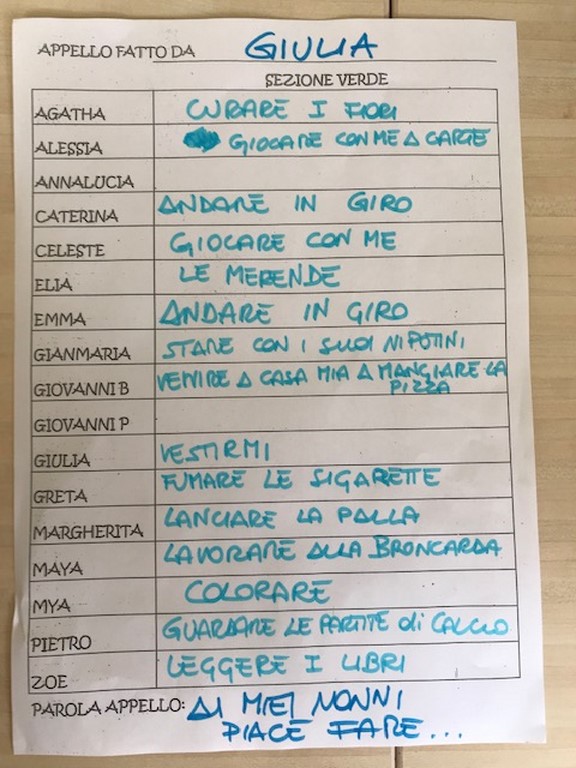 APPELLO FATTO DA GIULIA
SEZIONE VERDE
AGATHA CURARE I FIORI
ALESSIA GIOCARE CON ME A CARTE
ANNALUCIA
CATERINA ANDARE IN GIRO
CELESTE GIOCARE CON ME
ELIA LE MERENDE
EMMA ANDARE IN GIRO
GIANMARIA STARE CON I SUOI NIPOTINI
GIOVANNI B VENIRE A CASA MIA A MANGIARE LA
PIZZA
GIOVANNI P
GIULIA VESTIRMI
GRETA FUMARE LE SIGARETTE
MARGHERITA LANCIARE LA PALLA
MAYA LAVORARE ALLA BRONCARDA
MYA COLORARE
PIETRO GUARDARE LE PARTITE di CALCIO
ZOE LEGGERE I LIBRI
PAROLA APPELLO: AI MIEI NONNI
PIACE FARE...